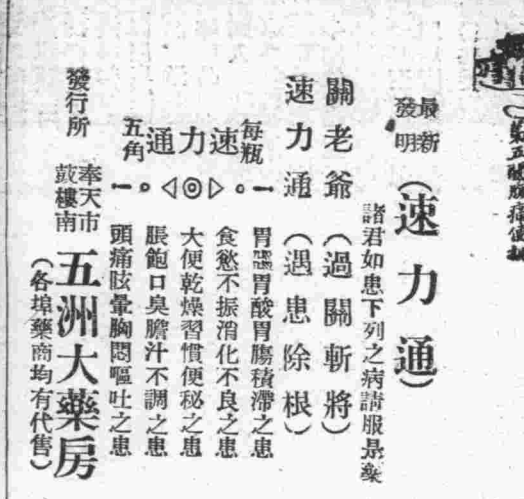 最新
發明
（速力通）
諸君如患下列之病請服是藥
關老爺（過關斬將）
速力通（遇患除根）
每瓶
速力通
五角
胃弱胃酸胃腸積滯之患
食慾不振消化不良之患
大便乾燥習慣便秘之患
脹飽口臭膽汁不調之患
頭痛眩暈胸悶嘔吐之患
發行所
奉天市
鼓樓南
五洲大藥房
（各埠藥商均有代售）